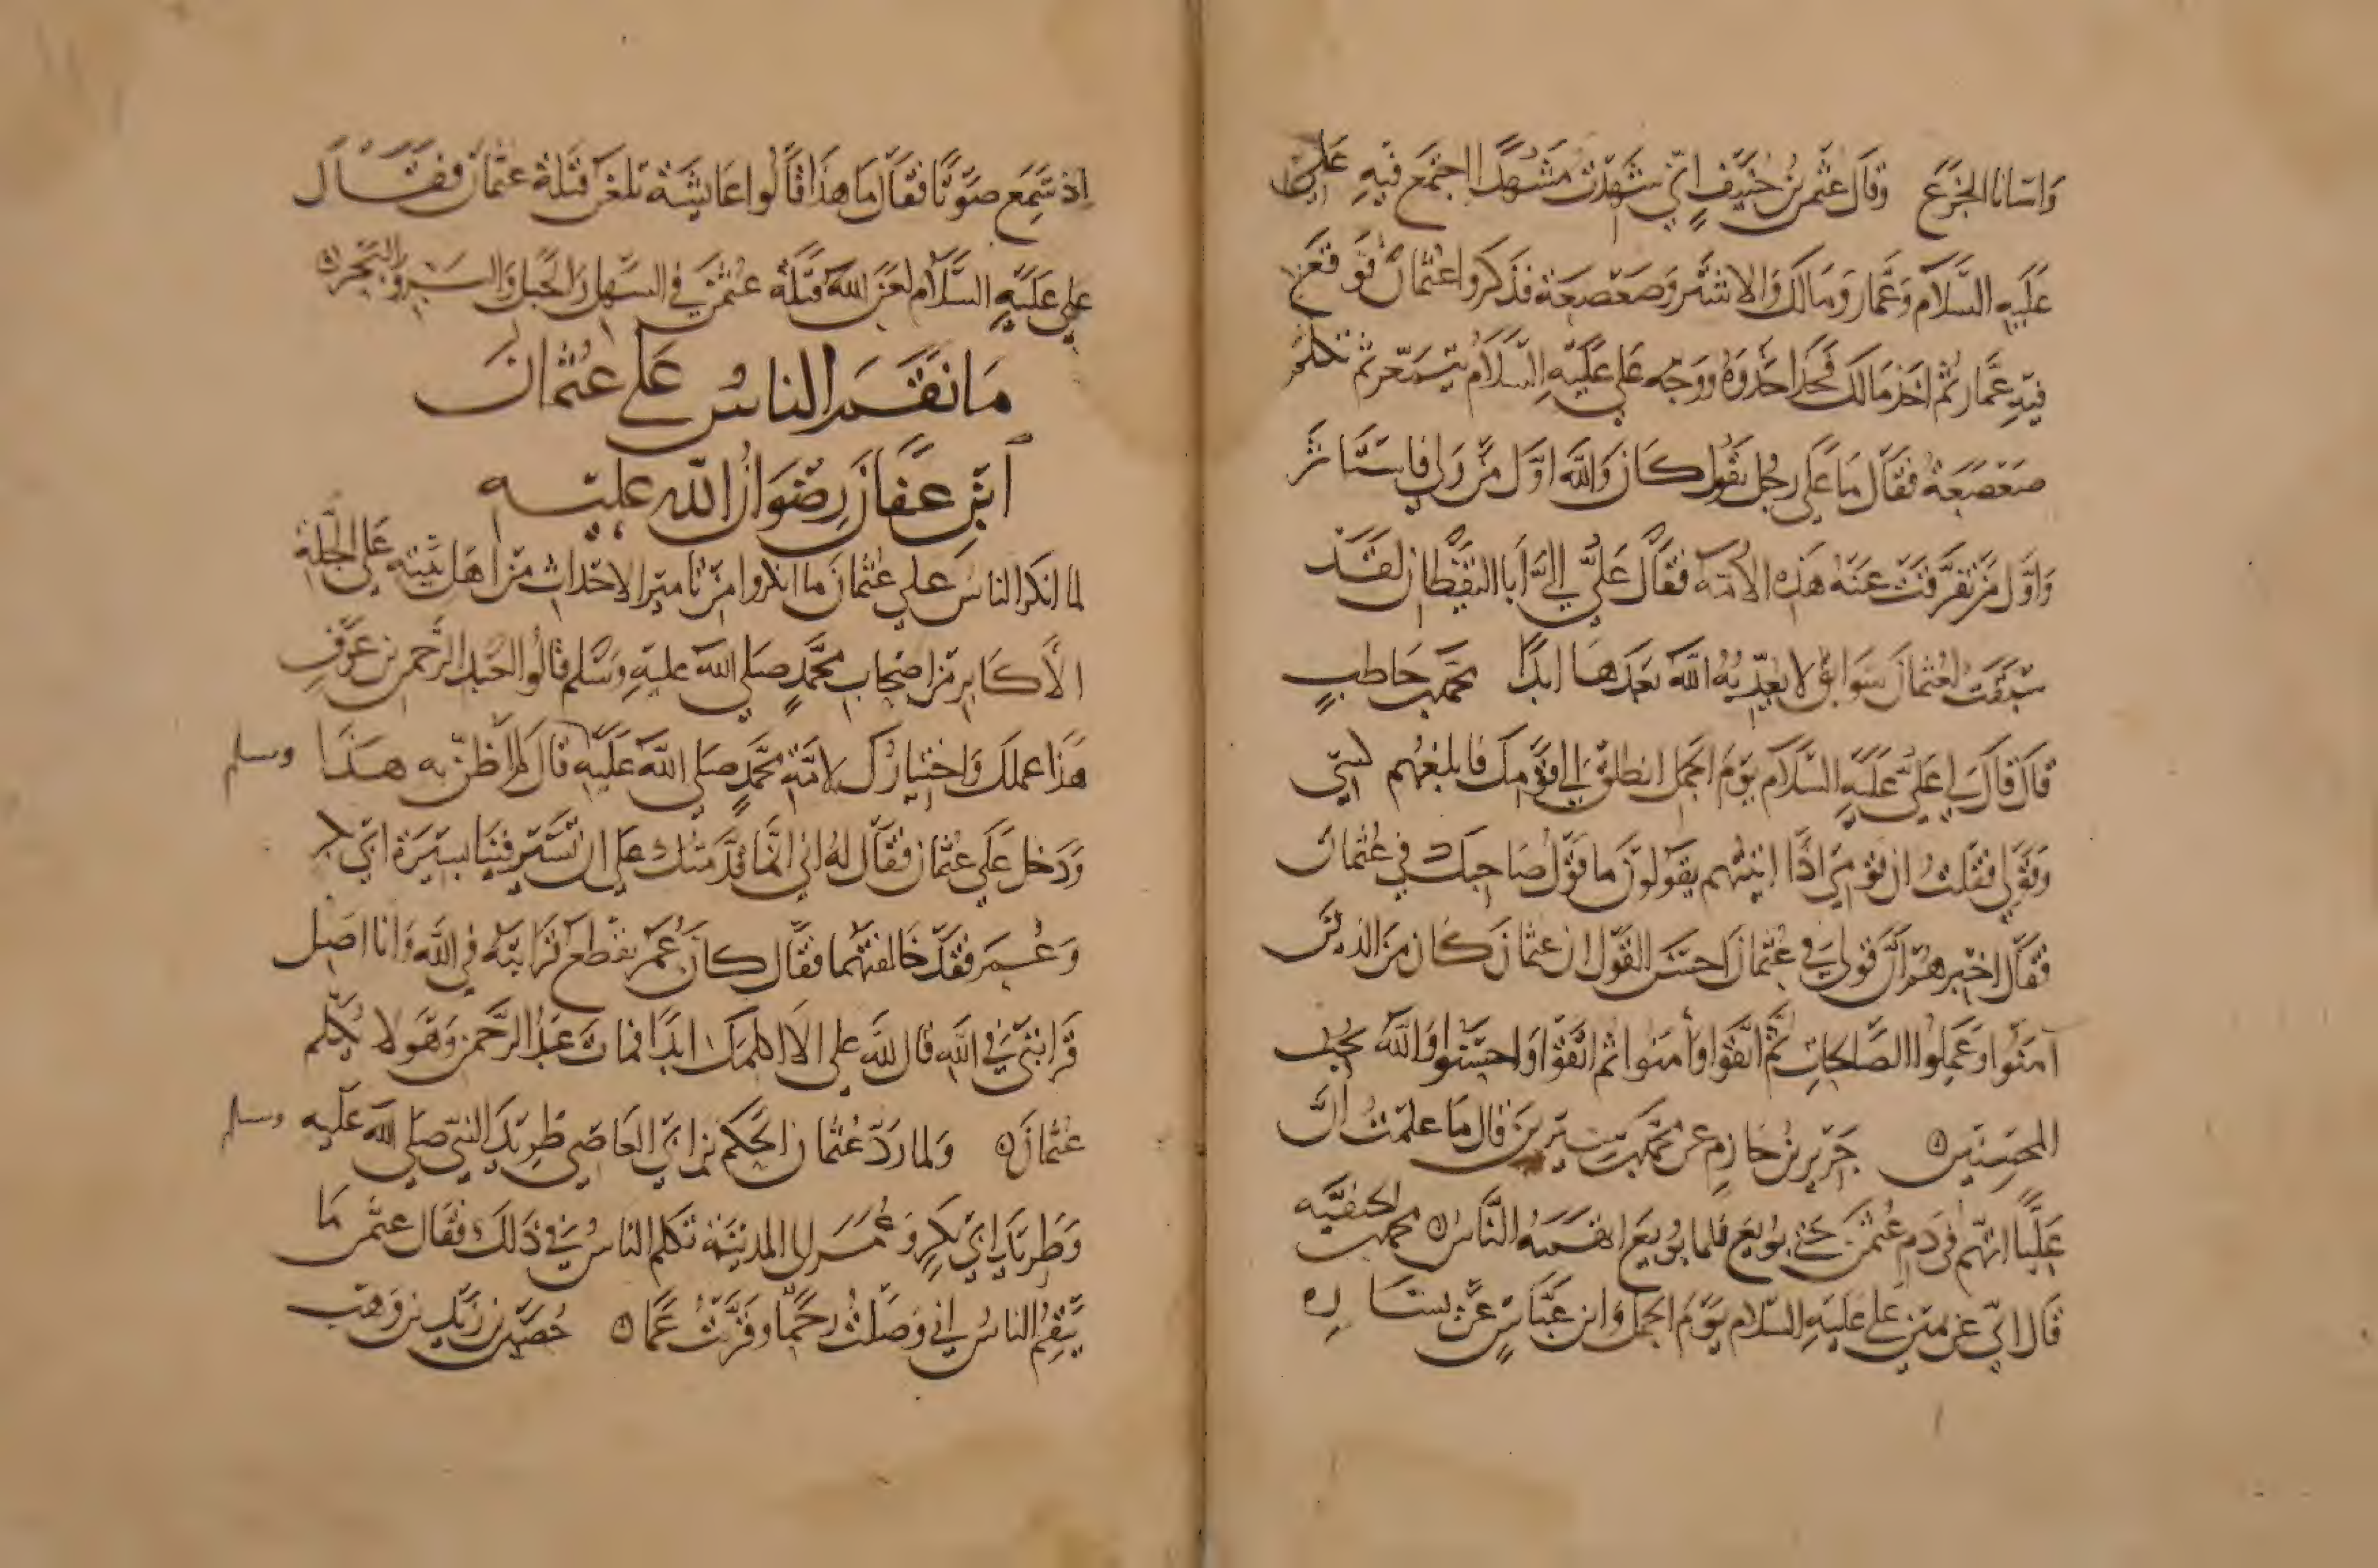 واسانا الجزع وقال عثمن بن حنيف اني شهدت مشهدا اجتمع فيه علي
عليه السلام وعمار ومالك والاشتر وصعصعة فذكروا عثمان فوقع
فيه عمار ثم اخذ مالك فحذا حذوه ووجه علي عليه السلام يتمعر ثم تكلم
صعصعة فقال ما علي رجل يقول كان والله اول من ولي فاستاثر
واول من تفرقت عنه هذه الامة فقال علي الي ابا اليقظان لقد
سبقت لعثمان سوابق لا يعذبه الله بعدها ابدا محمد بن حاطب
قال قال لي علي عليه السلام يوم الجمل انطلق الي قومك فابلغهم كتبي
وقولي فقلت ان قومي اذا اتيتهم يقولون ما قول صاحبك في عثمان
فقال اخبرهم ان قولي في عثمان احسن القول ان عثمان كان من الذين
آمنوا وعملوا الصالحات ثم اتقوا وأمنوا ثم اتقوا واحسنوا والله يحب
المحسنين جرير بن حازم عن محمد بن سيرين قال ما علمت ان
عليا اتهم في دم عثمن حتي بويع فلما بويع اتهمه الناس محمد بن الحنفيه
قال اني عن يمين علي عليه السلام يوم الجمل وابن عباس عن يساره
اذ سمع صوتا فقال ما هذا قالوا عايشة تلعن قتلة عثمان فقال
علي عليه السلام لعن الله قتلة عثمن في السهل والجبل والبر والبحر
ما نقم الناس علي عثمان
ابن عفان رضوان الله عليه
لما انكر الناس علي عثمان ما انكروا من تامير الاحداث من اهل بيته علي الجلة
الأكابر من اصحاب محمد صلي الله عليه وسلم قالوا لعبد الرحمن بن عوف
هذا عملك واختيارك لامة محمد صلي الله عليه وسلم قال لم اظن به هذا
ودخل علي عثمان فقال له اني انما قدمتك علي ان تسير فينا بسيرة ابي بكر
وعمر فقد خالفتهما فقال كان عمر يقطع قرابته في الله وانا اصل
قرابتي في الله قال لله علي الا اكلمك ابدا فمات عبد الرحمن وهو لا يكلم
عثمان ولما رد عثمان الحكم بن ابي العاصي طريد النبي صلي الله عليه وسلم
وطريد ابي بكر وعمر الي المدينة تكلم الناس في ذلك فقال عثمن ما
ينقم الناس اني وصلت رحما وقربت عما حصين بن زيد بن وهب